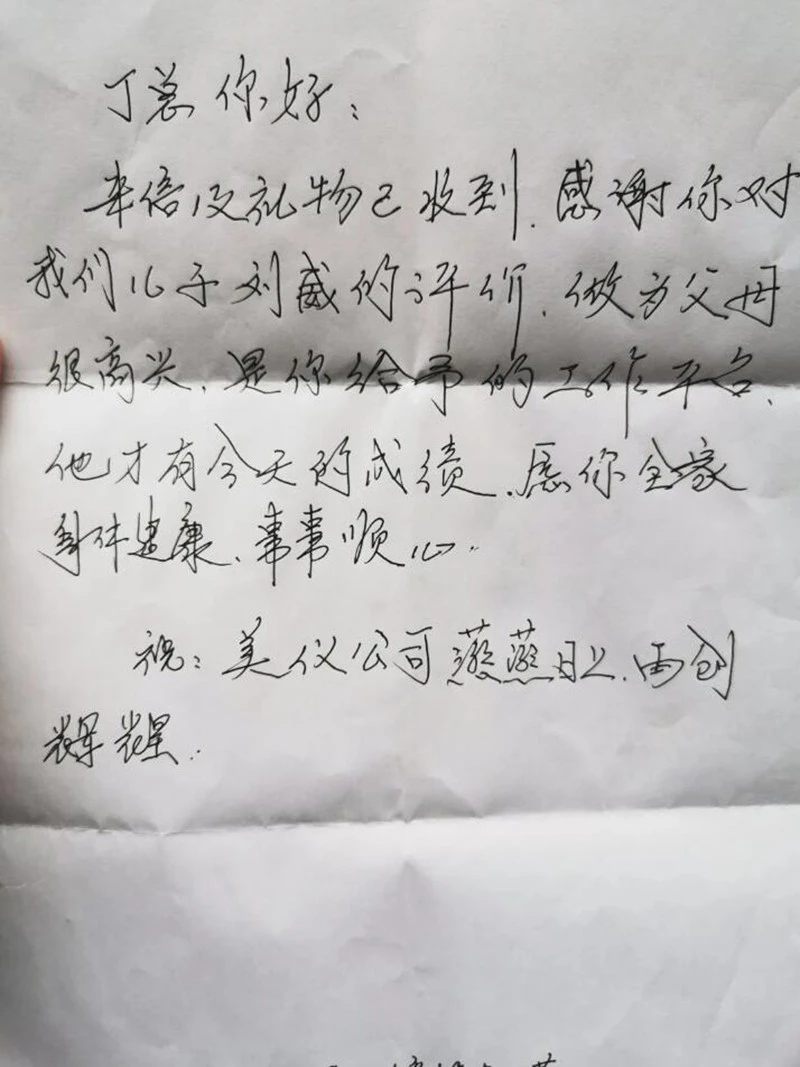 丁总你好:
来信及礼物已收到.感谢你对
我们儿子刘威的评价.做为父母
很高兴.是你给予的工作平台.
他才有今天的成绩.愿你全家
身体健康.事事顺心.
祝:美仪公司蒸蒸日上.再创
辉煌.